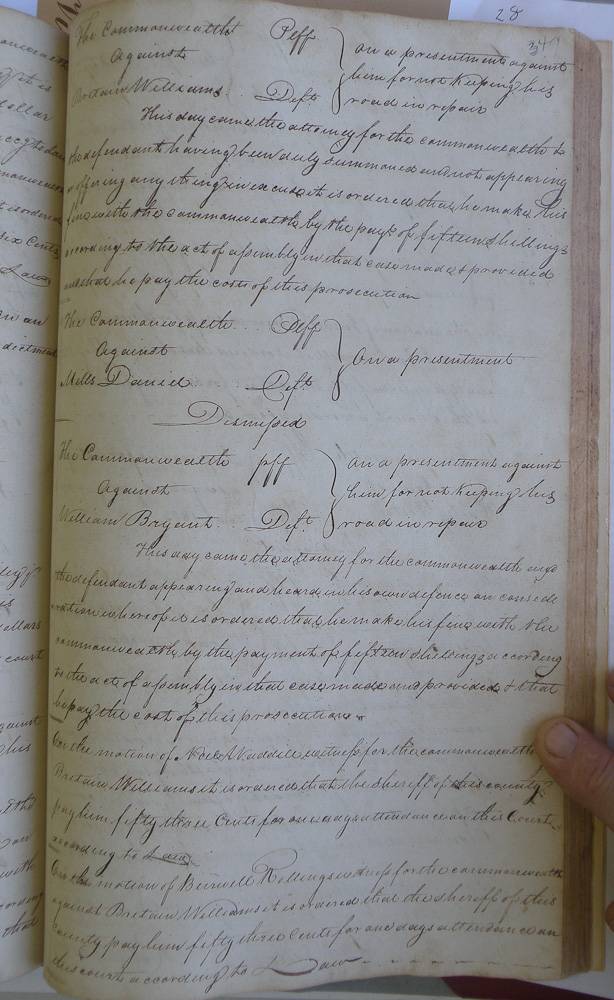 28
347
The Commonwealth Plff
Against
Britain Williams Deft.
on a presentment against
him for not Keeping his
road in repair
This day came the attorney for the commonwealth &
the defendant having been duly summoned and not appearing
or offering any thing in excuse it is ordered that he make his
fine with the commonwealth by the payt of fifteen shillings
according to the act of assembly in that case made & provided
and that he pay the costs of this prosecution
The Commonwealth Plff
Against
Mills Daniel Deft.
On a presentment
Dismissed
The Commonwealth plff
Against
William Bryant Deft.
on a presentment against
him for not Keeping his
road in repair
This day came the attorney for the commonwealth and
the defendant appearing and heard in his own defence on conside
ration whereof it is ordered that he make his fine with the
commonwealth by the payment of fifteen shillings according
to the act of assembly in that case made and provided & that
he pay the cost of this prosecution
On the motion of Waddill witness for the commonwealth
Britain Williams it is ordered that the sheriff of this county
pay him fifty three Cents for one days attendance on this Court
according to Law
On the motion of Burwell Rollings witness for the commonwealth
against Britain Williams it is ordered that the sheriff of this
County pay him fifty three Cents for one days attendance on
this court according to Law